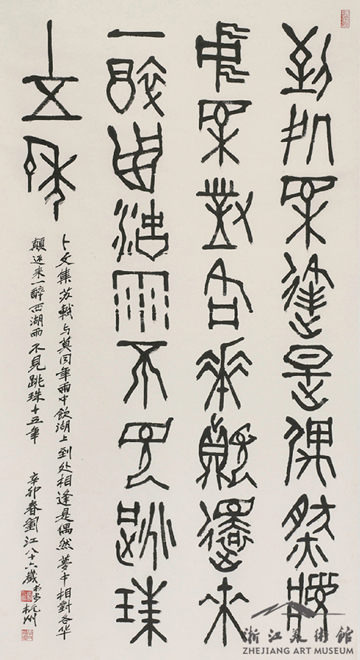 到處相逢是偶然夢
中相對各華顛還來
一醉西湖雨不見跳珠
十五年
卜文集蘇軾與莫同年雨中飲湖上到處相逢是偶然夢中相對各華
顛還來一醉西湖雨不見跳珠十五年 辛卯春劉江八十六歲於杭州
浙江美術館
ZHEJIANG ART MUSEUM